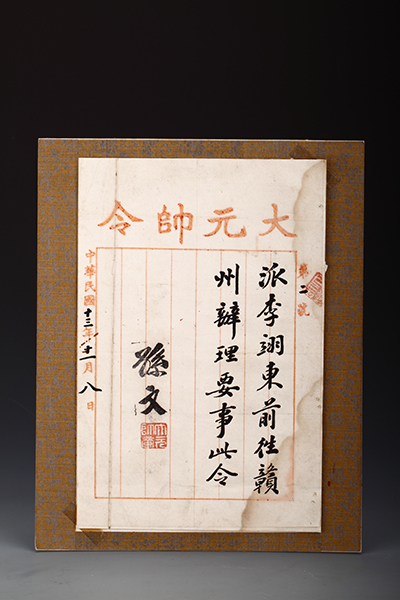 大元帥令
第二號
派李翊東前往贛
州辦理要事此令
孫文
中華民國十三年十一月八日